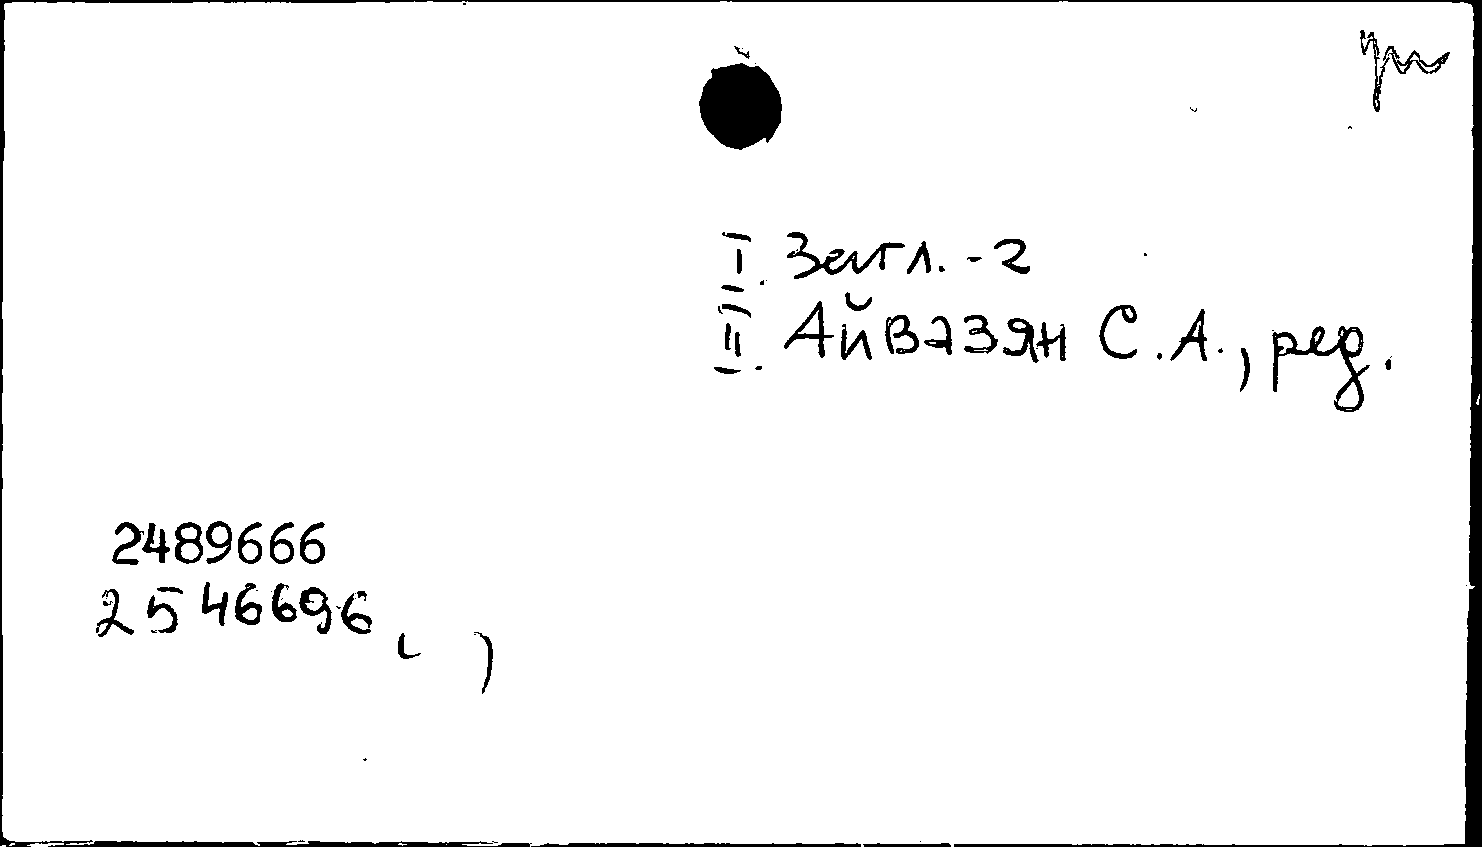 I. Загл. - 2
II. Айвазян С.А., ред.
2489666
2546696